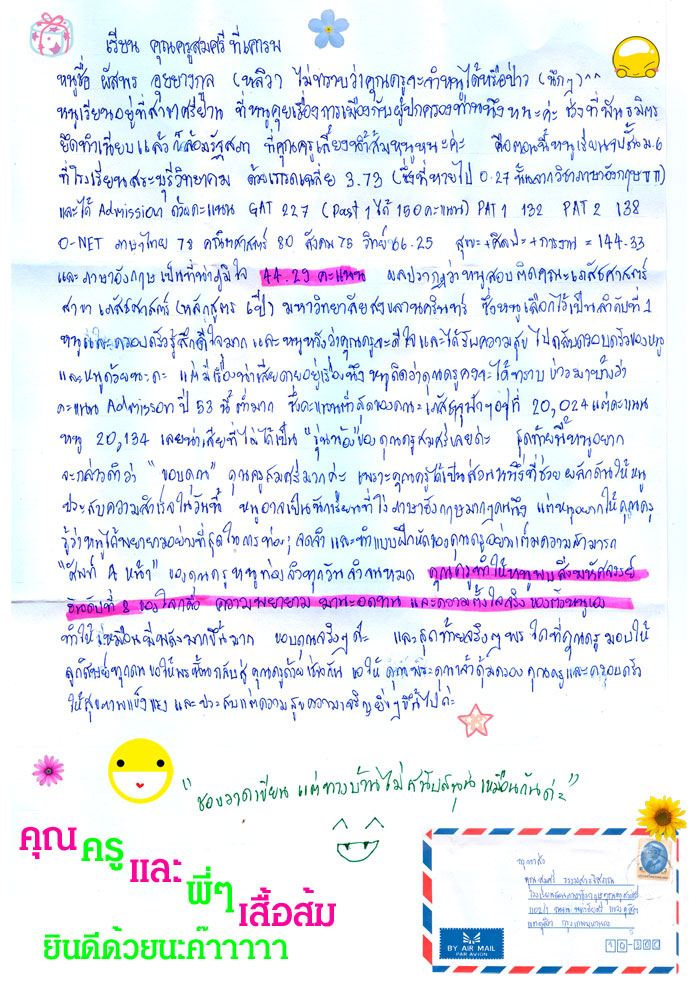 เรียน คุณครูสมศรี ที่เคารพ
หนูชื่อ ผัสพร อุยยางกูล (หลิว) ไม่ทราบว่าคุณครูจะจำหนูได้หรือป่าว (นึกๆ) ^^
หนูเรียนอยู่ที่สาขาศรีย่าน ที่หนูคุยเรื่องการเมืองกับผู้ปกครองท่านนึง หนะค่ะ ช่วงที่พันธมิตร
ยึดทำเนียบแล้วก็ล้อมรัฐสภา ที่คุณครูเลี้ยงน้ำส้มหนูหนะค่ะ คือตอนนี้หนูเรียนจบชั้น ม.6
ที่โรงเรียนสระบุรีวิทยาคม ด้วยเกรดเฉลี่ย 3.73 (ซึ่งที่หายไป 0.27 นั้นมาจากวิชาภาษาอังกฤษ
และได้ Admission ด้วยคะแนน GAT 227 (Past 1 ได้ 150 คะแนน) PAT 1 132 PAT 2 138
O-NET ภาษาไทย 78 คณิตศาสตร์ 80 สังคม 75 วิทย์ 66.25 สุขะ+ศิลปะ+การงาน = 144.33
และภาษาอังกฤษ เป็นที่น่าภูมิใจ 44.29 คะแนน ผลปรากฏว่าหนูสอบติดคณะเภสัชศาสตร์
สาขา เภสัชศาสตร์ (หลักสูตร 6 ปี) มหาวิทยาลัยสงขลานครินทร์ ซึ่งหนูเลือกไว้เป็นลำดับที่ 1
หนูและครอบครัวรู้สึกดีใจมาก และหนูหวังว่าคุณครูจะดีใจและได้รับความสุขไปกับครอบครัวของหนู
และหนูด้วยนะคะ แต่มีเรื่องน่าเสียดายอยู่เรื่องนึง หนูคิดว่าคุณครูคงจะได้ทราบข่าวมาบ้างว่า
คะแนน Admisson ปี 53 นี้ ต่ำมาก ซึ่งคะแนนต่ำสุดของคณะเภสัชจุฬาฯ อยู่ที่ 20,024 แต่คะแนน
หนู 20,134 เลยน่าเสียที่ไม่ได้เป็น "รุ่นน้อง" ของคุณครูสมศรีเลยค่ะ สุดท้ายนี้หนูอยาก
จะกล่าวคำว่า "ขอบคุณ" คุณครูสมศรีมากค่ะ เพราะคุณครูได้เป็นส่วนหนึ่งที่ช่วยผลักดันให้หนู
ประสบความสำเร็จในวันนี้ หนูอาจเป็นนักเรียนที่โง่ภาษาอังกฤษมากๆคนนึง แต่หนูอยากให้คุณครู
รู้ว่าหนูได้พยายามอย่างที่สุดในการท่อง, จดจำ และทำแบบฝึกหัดของคุณครูอย่างเต็มความสามารถ
"ศัพท์ A หน้า" ของคุณครู หนูท่องแล้วทุกวันจำจนหมด คุณครูทำให้หนูพบสิ่งมหัศจรรย์
อันดับที่ 8 ของโลกคือ ความพยายาม มานะอดทน และความตั้งใจจริงของตัวหนูเอง
ทำให้ มีพลังมากขึ้นมาก ขอบคุณจริงๆค่ะ และสุดท้ายจริงๆ พรใดที่คุณครูมอบให้
ลูกศิษย์ทุกคน ขอให้พรนั้นกลับสู่คุณครูด้วยเช่นกัน ขอให้ คุ้มครองคุณครูและครอบครัว
ให้สุขภาพแข็งแรง และประสบแต่ความสุขความเจริญยิ่งๆขึ้นไปค่ะ
"ชอบวาดเขียน แต่ทางบ้านไม่สนับสนุน เหมือนกันค่ะ"
คุณ
ครู
และ
พี่ๆ
เสื้อส้ม
ยินดีด้วยนะค๊าาาาา
กรุณาส่ง
คุณสมศรี
BY AIR MAIL
PAR AVION
10-300